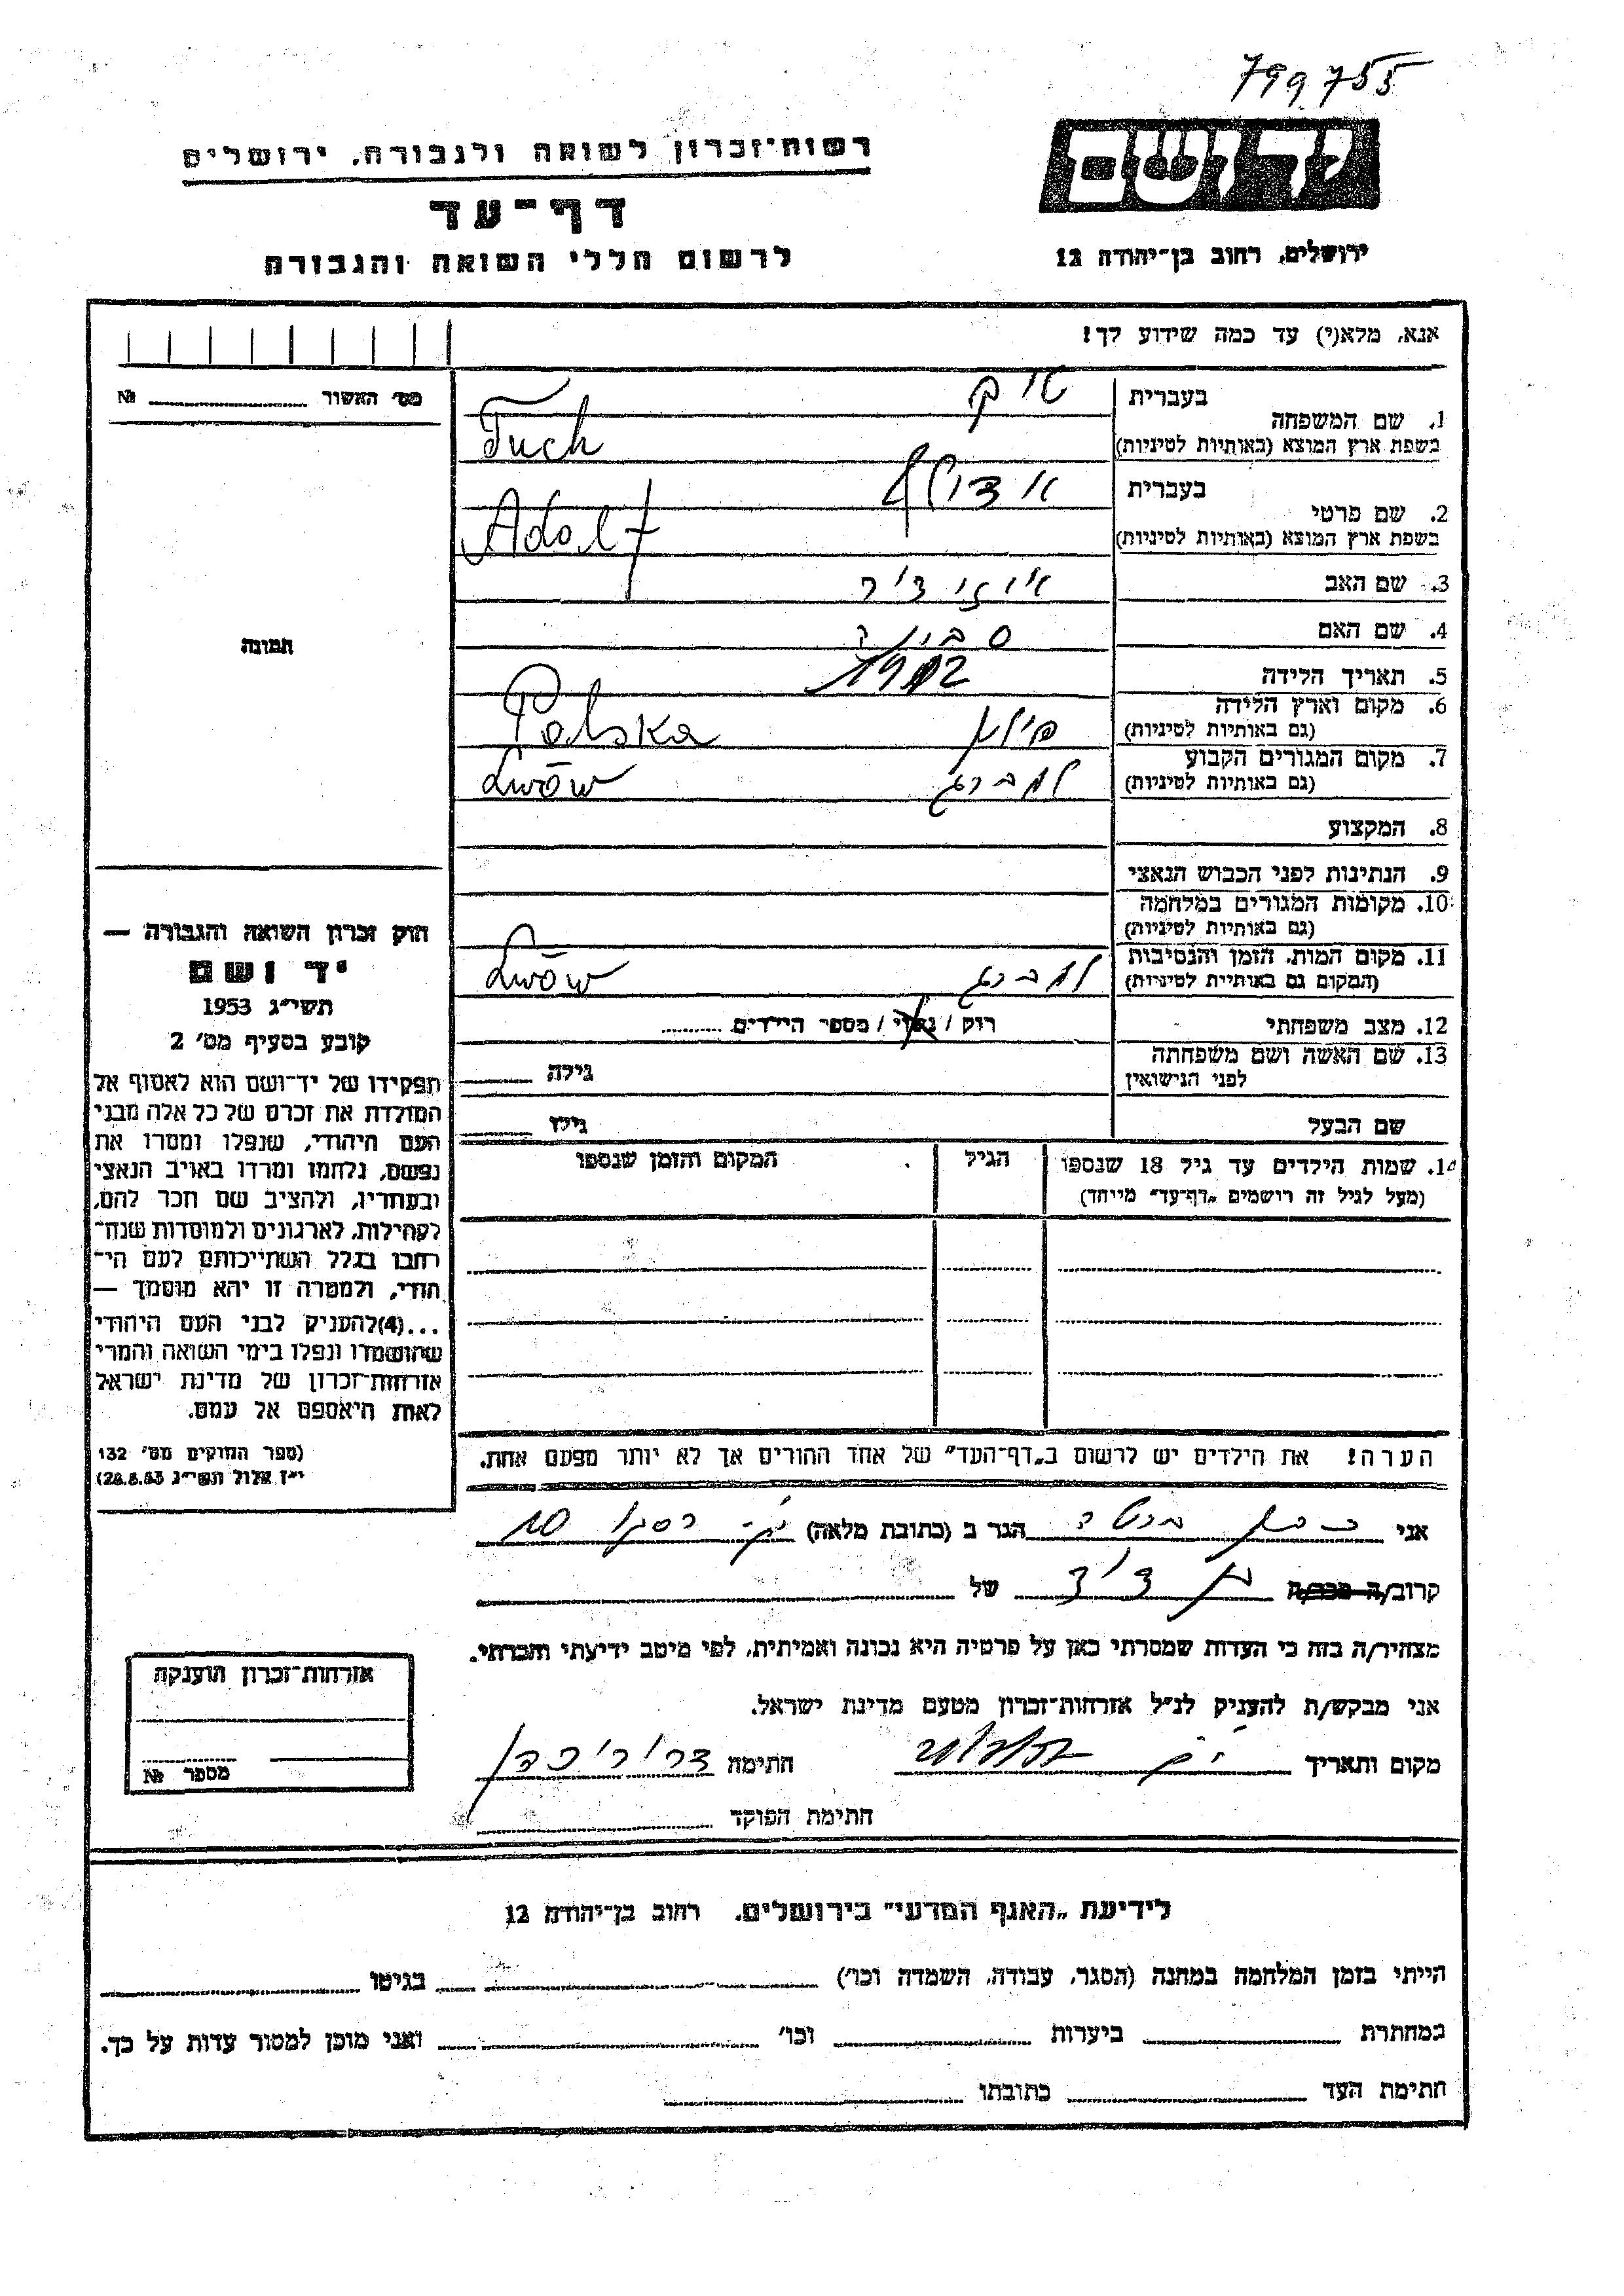 799755
רשות־זכרון לשואה ולגבורה, ירושלים
יד ושם
דף־עד
לרשום חללי השואה והגבורה
ירושלים, רחוב בן־יהודה 12
אנא, מלא(י) עד כמה שידוע לך!
מס׳ האשור № 
1. שם המשפחה
בעברית
בשפת ארץ המוצא (באותיות לטיניות) Tuch
2. שם פרטי
בעברית אדולף
בשפת ארץ המוצא (באותיות לטיניות) Adolf
3. שם האב
4. שם האם
תמונה
5. תאריך הלידה 1912
6. מקום וארץ הלידה (גם באותיות לטיניות) פולין Polska
7. מקום המגורים הקבוע (גם באותיות לטיניות) למברג Lwów
8. המקצוע
9. הנתינות לפני הכבוש הנאצי
10. מקומות המגורים במלחמה (גם באותיות לטיניות)
11. מקום המות, הזמן והנסיבות (המקום גם באותיות לטיניות) למברג Lwów
12. מצב משפחתי רווק / נשוי / מספר הילדים
13. שם האשה ושם משפחתה לפני הנישואין גילה
שם הבעל גילו
14. שמות הילדים עד גיל 18 שנספו הגיל המקום והזמן שנספו
(מעל לגיל זה רושמים „דף־עד” מיוחד)
חוק זכרון השואה והגבורה —
יד ושם
תשי״ג 1953
קובע בסעיף מס׳ 2
תפקידו של יד־ושם הוא לאסוף אל
המולדת את זכרם של כל אלה מבני
העם היהודי, שנפלו ומסרו את
נפשם, נלחמו ומרדו באויב הנאצי
ובעוזריו, ולהציב שם וזכר להם,
לקהילות, לארגונים ולמוסדות שנח־
רבו בגלל השתייכותם לעם הי־
הודי, ולמטרה זו יהא מוסמך —
...(4)להעניק לבני העם היהודי
שהושמדו ונפלו בימי השואה והמרי
אזרחות־זכרון של מדינת ישראל
לאות היאספם אל עמם.
(ספר החוקים מס׳ 132
י״ז אלול תשי״ג 28.8.53)
הערה! את הילדים יש לרשום ב„דף־העד” של אחד ההורים אך לא יותר מפעם אחת.
אני הגר ב (כתובת מלאה)
קרוב/ה מכר/ה בן דוד של
מצהיר/ה בזה כי העדות שמסרתי כאן על פרטיה היא נכונה ואמיתית, לפי מיטב ידיעתי והכרתי.
אני מבקש/ת להעניק לנ״ל אזרחות־זכרון מטעם מדינת ישראל.
מקום ותאריך חתימה
חתימת הפוקד
אזרחות־זכרון הוענקה
מספר №
לידיעת „האגף המדעי” בירושלים, רחוב בן־יהודה 12
הייתי בזמן המלחמה במחנה (הסגר, עבודה, השמדה וכו׳) בגיטו
במחתרת ביערות וכו׳ ואני מוכן למסור עדות על כך.
חתימת העד כתובתו